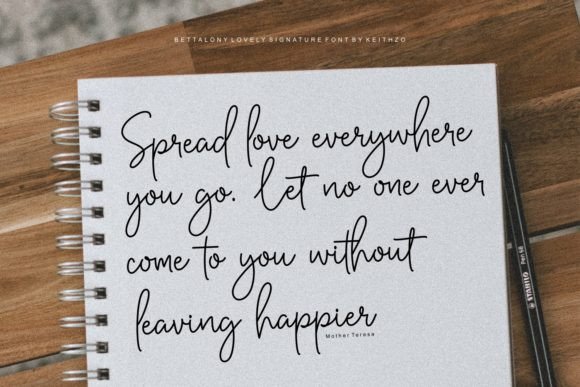 BETTALONY LOVELY SIGNATURE FONT BY KEITHZO
Spread love everywhere
you go. Let no one ever
come to you without
leaving happier
Mother Terese
STABILO Pen 68